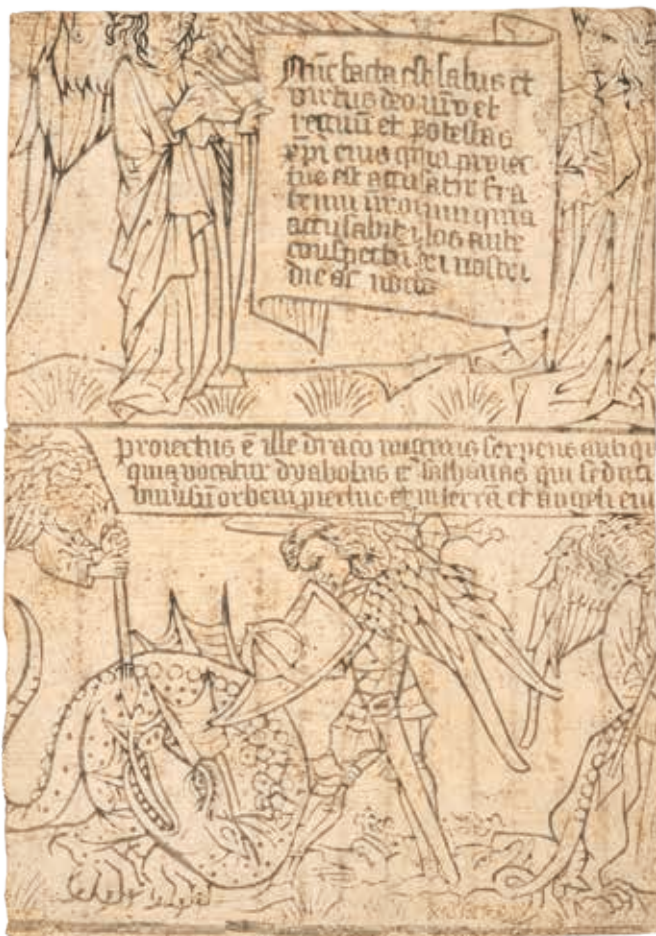 Nūc facta est salus et
virtus deo nr̄o et
regnū et potestas
xp̄i eius quia proiec-
tus est accusator fra
trum nr̄orum qui
accusabat illos ante
conspectū dei nostri
die ac nocte
proiectus ē ille draco magnus serpens antiqu
qui vocatur dyabolus et sathanas qui seduci
vniuersū orbem et in terrā et angeli eiu